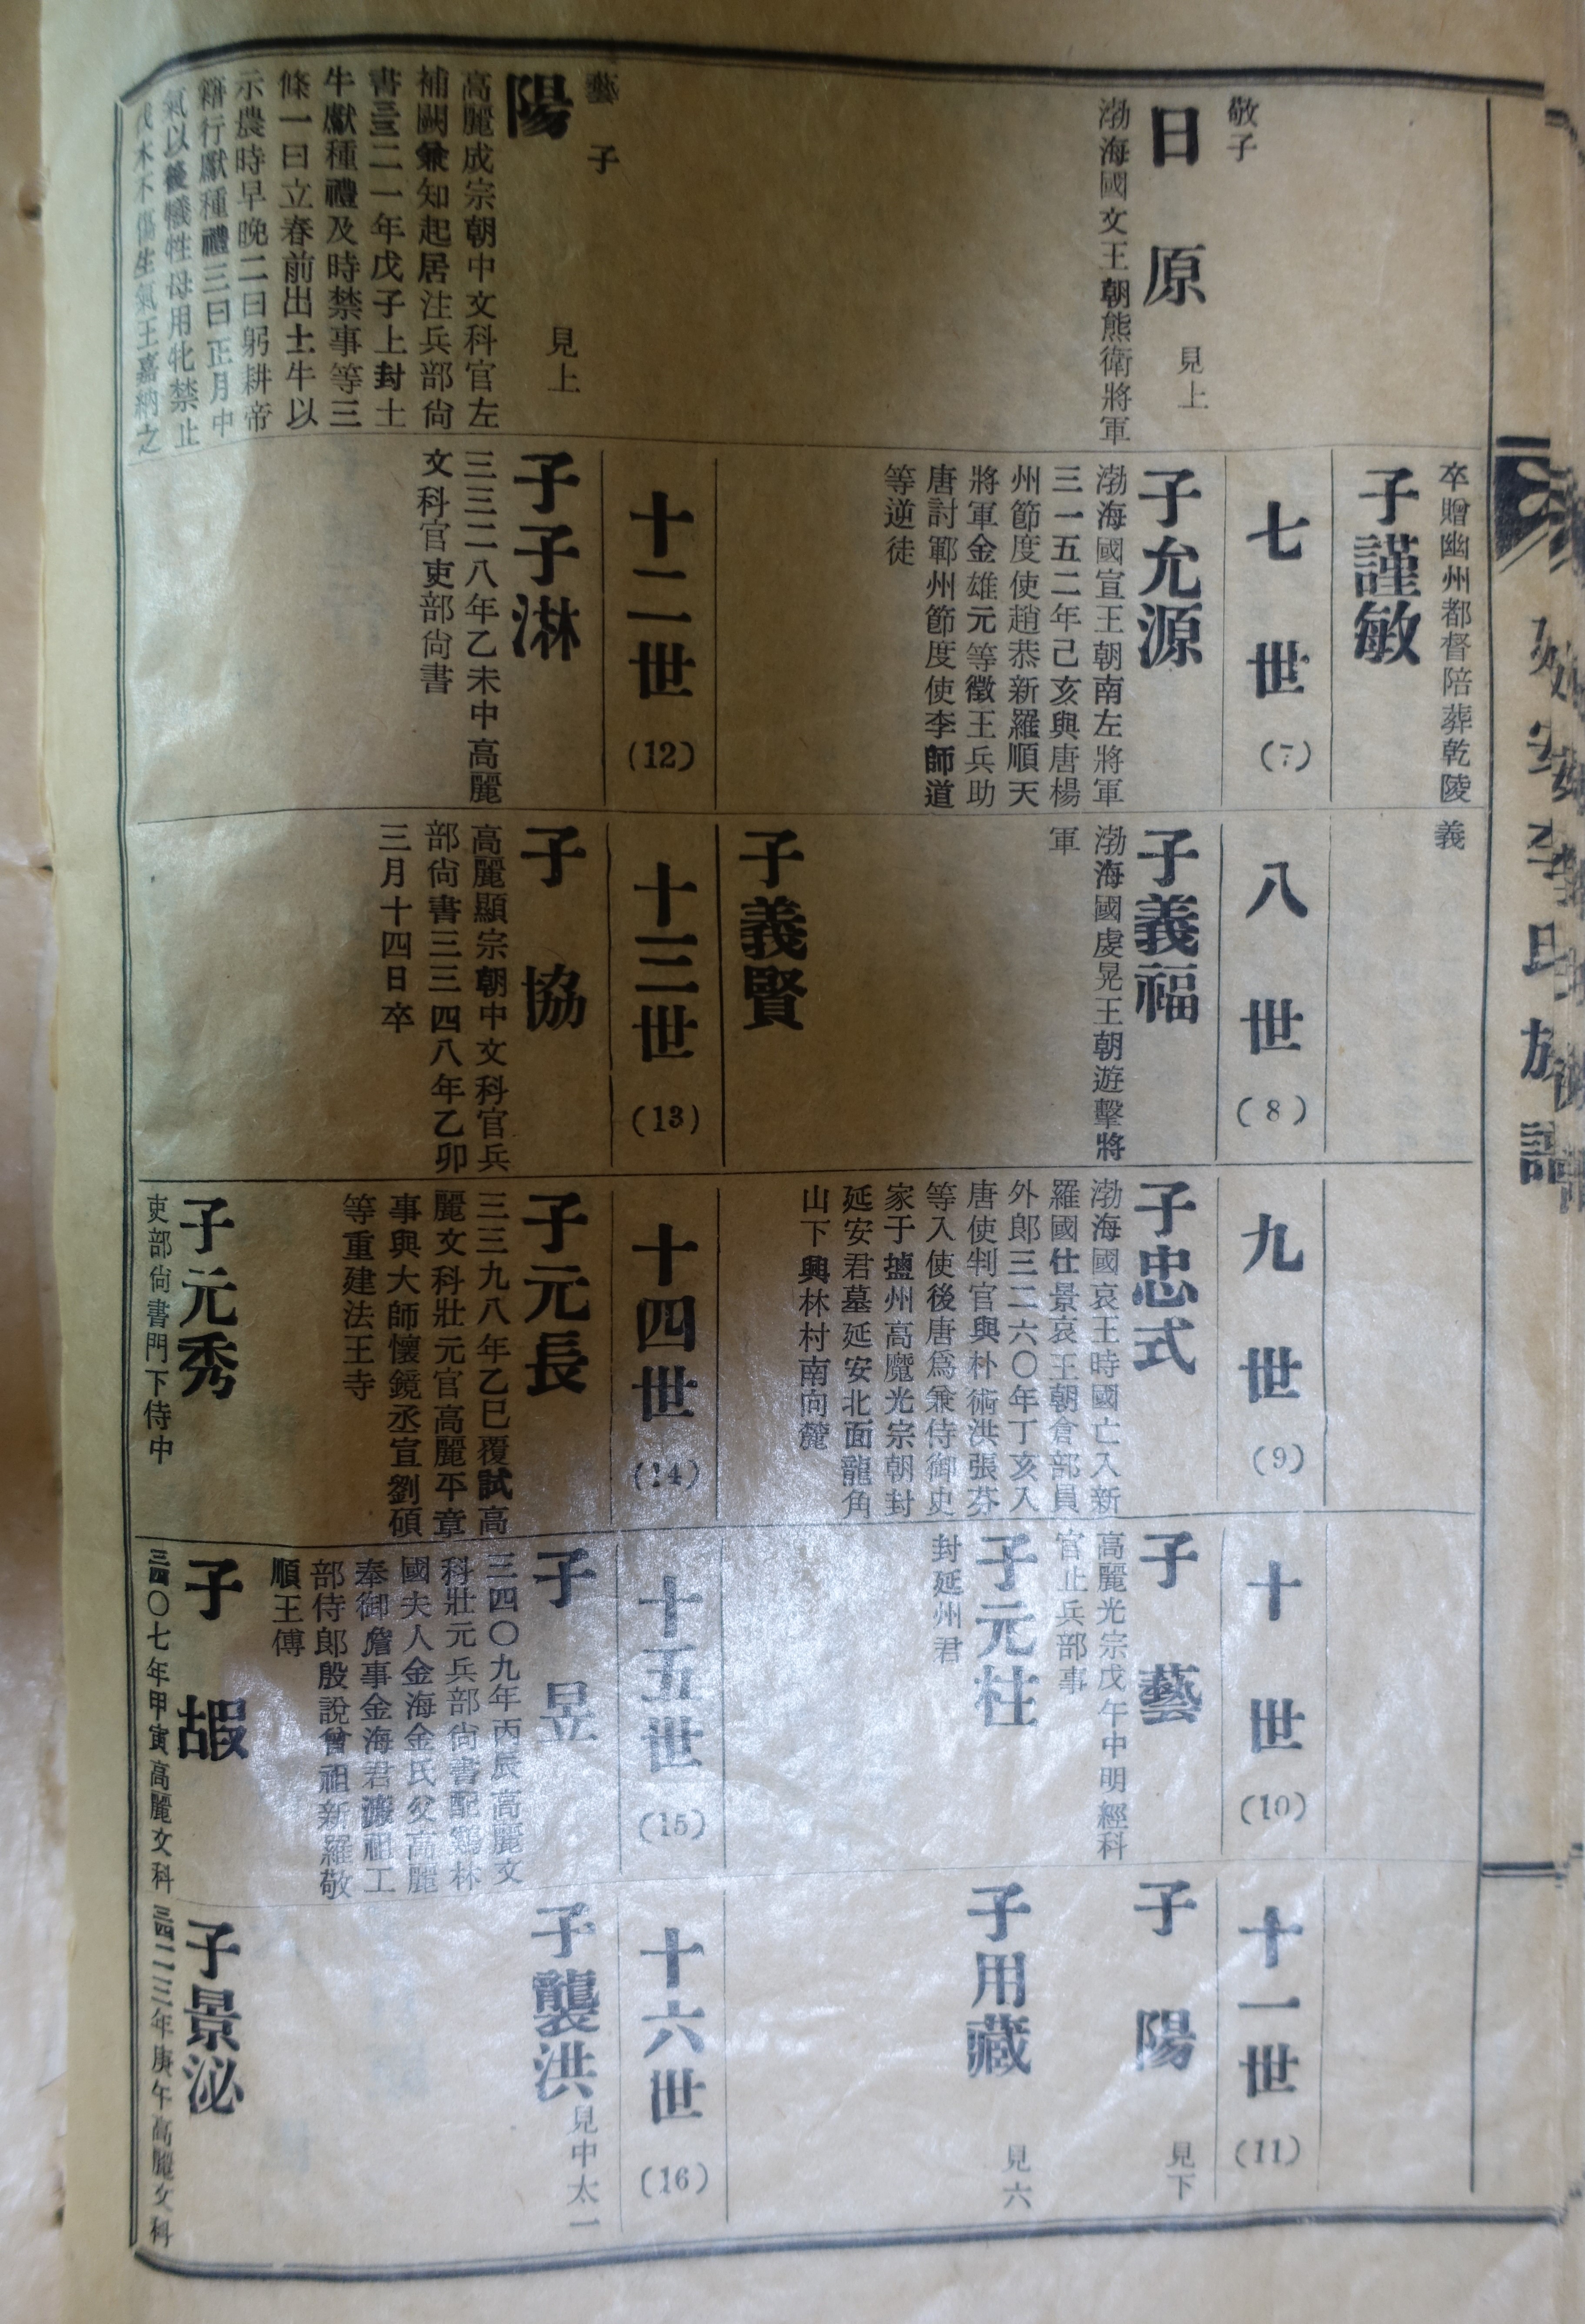 卒贈幽州都督陪葬乾陵
義
子謹敏
七世
(7)
八世
(8)
九世
(9)
十世
(10)
十一世
(11)
敬子
日原
見上
渤海國文王朝熊衛將軍
子允源
渤海國宣王朝南左將軍
三一五二年己亥與唐楊
州節度使趙恭新羅順天
將軍金雄元等徵王兵助
唐討鄆州節度使李師道
等逆徒
子義福
渤海國虔晃王朝遊擊將
軍
子義賢
子忠式
渤海國哀王時國亡入新
羅國仕景哀王朝倉部員
外郎三二六〇年丁亥入
唐使判官與朴術洪張芬
等入使後唐爲兼侍御史
家于鹽州高麗光宗朝封
延安君墓延安北面龍角
山下興林村南向麓
子藝
高麗光宗戊午中明經科
官止兵部事
子元柱
封延州君
子陽
見下
子用藏
見六
十二世
(12)
十三世
(13)
十四世
(14)
十五世
(15)
十六世
(16)
藝子
陽
見上
高麗成宗朝中文科官左
補闕兼知起居注兵部尙
書三三二一年戊子上封土
牛獻種禮及時禁事等三
條一曰立春前出土牛以
示農時早晚二曰躬耕帝
籍行獻種禮三曰正月中
氣以後犧牲毋用牝禁止
伐木不傷生氣王嘉納之
子子淋
三三二八年乙未中高麗
文科官吏部尙書
子協
高麗顯宗朝中文科官兵
部尙書三三四八年乙卯
三月十四日卒
子元長
三三九八年乙巳覆試高
麗文科壯元官高麗平章
事與大師懷鏡丞宣劉碩
等重建法王寺
子元秀
吏部尙書門下侍中
子昱
三四〇九年丙辰高麗文
科壯元兵部尙書配鷄林
國夫人金海金氏父高麗
奉御詹事金海君 祖工
部侍郞殷說曾祖新羅敬
順王傅
子嘏
三四〇七年甲寅高麗文科
子襲洪
見中太一
子景泌
三四二三年庚午高麗文科